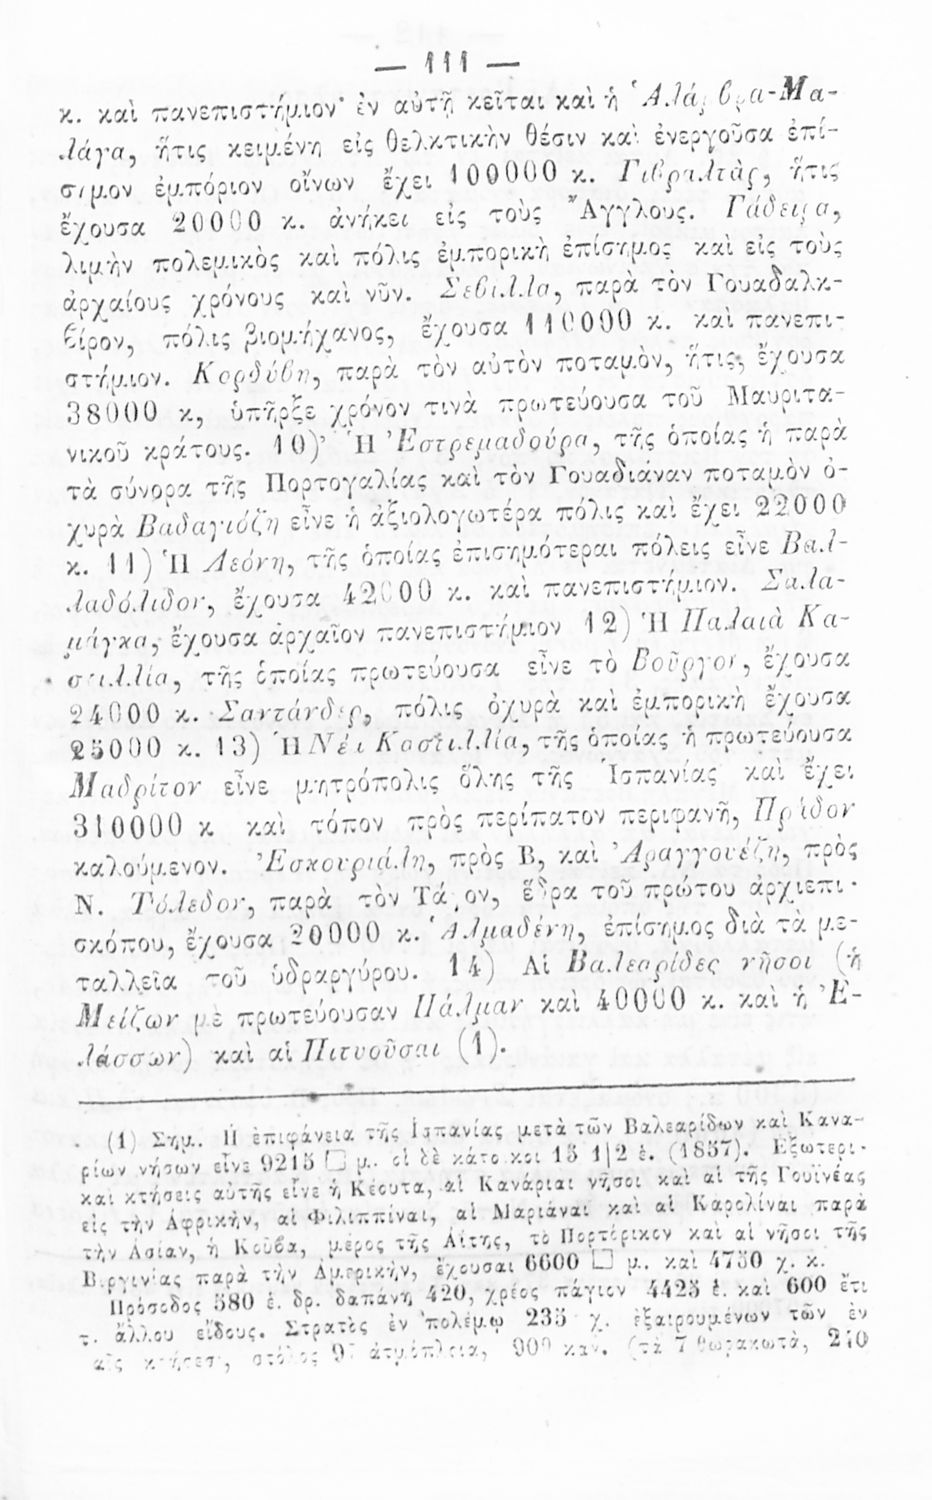 — 111 —
κ. καὶ πανεπιστήμιον· ἐν αὐτῇ κεῖται καὶ ἡ Ἀλάμβρα-Μα-
λάγα, ἥτις κειμένη εἰς θελκτικὴν θέσιν καὶ ἐνεργοῦσα ἐπί-
σημον ἐμπόριον οἴνων ἔχει 100000 κ. Γιβραλτὰρ, ἥτις
ἔχουσα 20000 κ. ἀνήκει εἰς τοὺς Ἄγγλους. Γάδειρα,
λιμὴν πολεμικὸς καὶ πόλις ἐμπορικὴ ἐπίσημος καὶ εἰς τοὺς
ἀρχαίους χρόνους καὶ νῦν. Σεβίλλα, παρὰ τὸν Γουαδαλκ-
βίρον, πόλις βιομήχανος, ἔχουσα 110000 κ. καὶ πανεπι-
στήμιον. Κορδύβη, παρὰ τὸν αὐτὸν ποταμὸν, ἥτις, ἔχουσα
38000 κ, ὑπῆρξε χρόνον τινὰ πρωτεύουσα τοῦ Μαυριτα-
νικοῦ κράτους. 10) Ἡ Ἐστρεμαδούρα, τῆς ὁποίας ἡ παρὰ
τὰ σύνορα τῆς Πορτογαλίας καὶ τὸν Γουαδιάναν ποταμὸν ὀ-
χυρὰ Βαδαγιόζη εἶνε ἡ ἀξιολογωτέρα πόλις καὶ ἔχει 22000
κ. 11) Ἡ Λεόνη, τῆς ὁποίας ἐπισημότεραι πόλεις εἶνε Βαλ-
λαδόλιδον, ἔχουσα 42000 κ. καὶ πανεπιστήμιον. Σαλα-
μάγκα, ἔχουσα ἀρχαῖον πανεπιστήμιον 12) Ἡ Παλαιὰ Κα-
στιλλία, τῆς ὁποίας πρωτεύουσα εἶνε τὸ Βοῦργον, ἔχουσα
24000 κ. Σαντάνδερ, πόλις ὀχυρὰ καὶ ἐμπορικὴ ἔχουσα
25000 κ. 13) Ἡ Νέα Καστιλλία, τῆς ὁποίας ἡ πρωτεύουσα
Μαδρίτον εἶνε μητρόπολις ὅλης τῆς Ἱσπανίας καὶ ἔχει
310000 κ καὶ τόπον πρὸς περίπατον περιφανῆ, Πρᾶδον
καλούμενον. Ἐσκουριάλη, πρὸς Β, καὶ Ἀραγγουέζη, πρὸς
Ν. Τόλεδον, παρὰ τὸν Τάγον, ἕδρα τοῦ πρώτου ἀρχιεπι-
σκόπου, ἔχουσα 20000 κ. Ἀλμαδένη, ἐπίσημος διὰ τὰ με-
ταλλεῖα τοῦ ὑδραργύρου. 14) Αἱ Βαλεαρίδες νῆσοι (ἡ
Μείζων μὲ πρωτεύουσαν Πάλμαν καὶ 40000 κ. καὶ ἡ Ἐ-
λάσσων) καὶ αἱ Πιτυοῦσαι (1).
(1) Σημ. Ἡ ἐπιφάνεια τῆς Ἱσπανίας μετὰ τῶν Βαλεαρίδων καὶ Κανα-
ρίων νήσων εἶνε 9215 □ μ. οἱ δὲ κάτοικοι 15 1|2 ἑ. (1857). Ἐξωτερι-
καὶ κτήσεις αὐτῆς εἶνε ἡ Κέουτα, αἱ Κανάριαι νῆσοι καὶ αἱ τῆς Γουϊνέας
εἰς τὴν Ἀφρικὴν, αἱ Φιλιππίναι, αἱ Μαριάναι καὶ αἱ Καρολίναι παρὰ
τὴν Ἀσίαν, ἡ Κούβα, μέρος τῆς Αἴτης, τὸ Πορτόρικον καὶ αἱ νῆσοι τῆς
Βιργινίας παρὰ τὴν Ἀμερικὴν, ἔχουσαι 6600 □ μ. καὶ 4750 χ. κ.
Πρόσοδος 580 ἑ. δρ. δαπάνη 420, χρέος πάγιον 4425 ἑ. καὶ 600 ἔτι
τ. ἄλλου εἴδους. Στρατὸς ἐν πολέμῳ 235 χ. ἐξαιρουμένων τῶν ἐν
αἷς κτήσεσι, στόλος ἀτμόπλοια, καν. (τὰ 7 θωρακωτὰ, 240